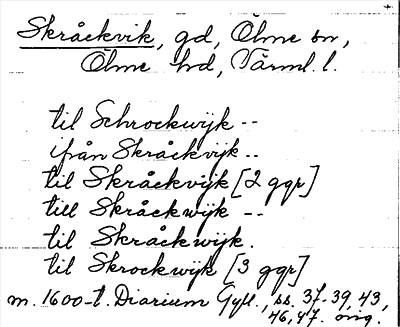 Skråckvik, gd, Ölme sn,
Ölme hd, Värml. l.
til Schrockwijk --
ifrån Skråckvijk --
til Skråckvijk [2 ggr]
till Skråckwijk --
til Skråckwijk.
til Skrockwijk [3 ggr]
m. 1600-t. Diarium Gyll., ss. 37-39, 43,
46, 47. orig.